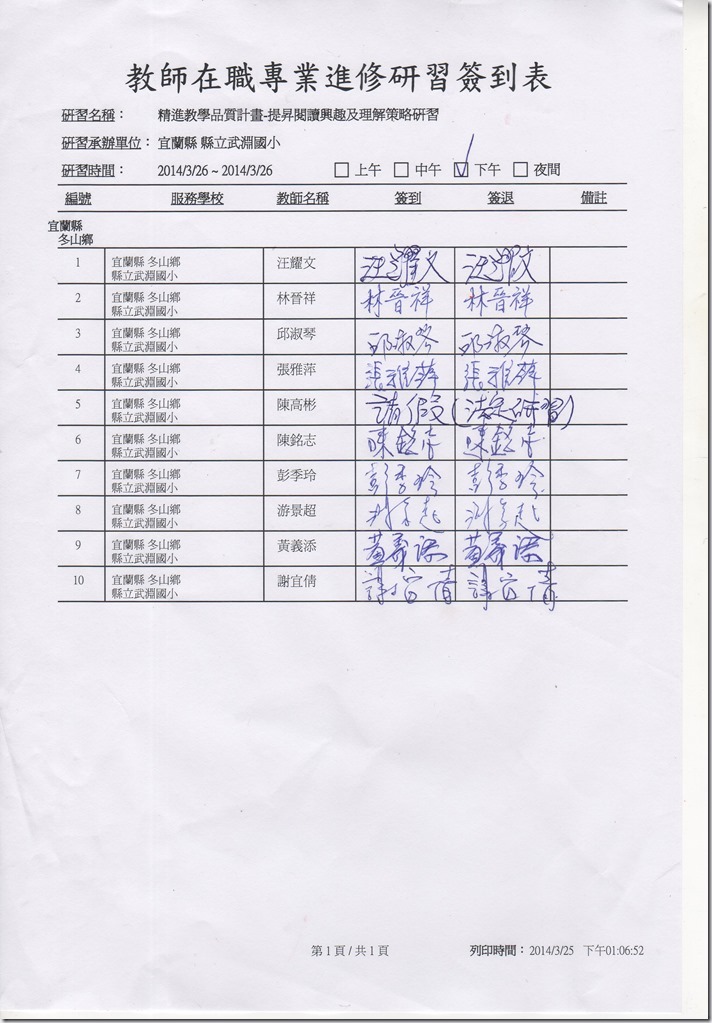 教師在職專業進修研習簽到表
研習名稱： 精進教學品質計畫-提昇閱讀興趣及理解策略研習
研習承辦單位： 宜蘭縣 縣立武淵國小
研習時間： 2014/3/26 ~ 2014/3/26 □ 上午 □ 中午 ☑ 下午 □ 夜間
編號 服務學校 教師名稱 簽到 簽退 備註
宜蘭縣
冬山鄉
1 宜蘭縣 冬山鄉 汪耀文 汪耀文 汪耀文
縣立武淵國小
2 宜蘭縣 冬山鄉 林晉祥 林晉祥 林晉祥
縣立武淵國小
3 宜蘭縣 冬山鄉 邱淑琴 邱淑琴 邱淑琴
縣立武淵國小
4 宜蘭縣 冬山鄉 張雅萍 張雅萍 張雅萍
縣立武淵國小
5 宜蘭縣 冬山鄉 陳高彬 請假(法定研習)
縣立武淵國小
6 宜蘭縣 冬山鄉 陳銘志 陳銘志 陳銘志
縣立武淵國小
7 宜蘭縣 冬山鄉 彭季玲 彭季玲 彭季玲
縣立武淵國小
8 宜蘭縣 冬山鄉 游景超 游景超 游景超
縣立武淵國小
9 宜蘭縣 冬山鄉 黃義添 黃義添 黃義添
縣立武淵國小
10 宜蘭縣 冬山鄉 謝宜倩 謝宜倩 謝宜倩
縣立武淵國小
第 1 頁 / 共 1 頁 列印時間： 2014/3/25 下午01:06:52